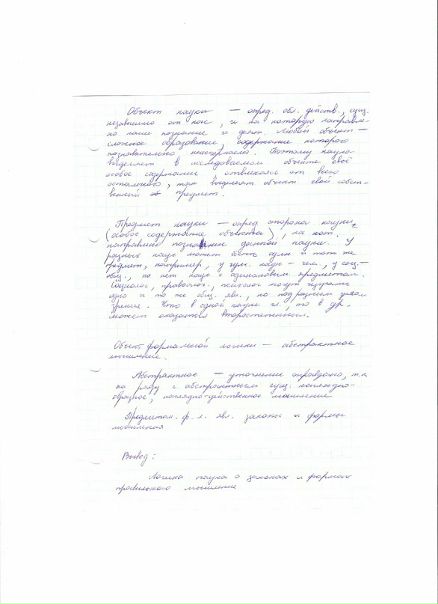 Объект науки — опред. обл. действ., сущ.
независимо от нас, и на которую направле-
но наше познание и деят. Любой объект —
сложное образование, содержание которого
познавательно неисчерпаемо. Поэтому наука
выделяет в исследуемом объекте своё
особое содержание, отвлекаясь от всего
остального, т.е. вычленяет объект свой собст-
венный предмет.
Предмет науки — опред. сторона науки,
(особое содержание объекта), на кот.
направлено познание данной науки. У
разных наук может быть один и тот же
предмет, например, у гум. наук – чел., у соц. –
общ., но нет наук с одинаковым предметом.
Социолог, правовед, психолог могут изучать
одно и то же общ. явл., но под разным углом
зрения. Что в одной науке гл., то в др.
может оказаться второстепенным.
Объект формальной логики — абстрактное
мышление.
Абстрактное — уточнение оправдано, т.к.
на ряду с абстрактным сущ. наглядно-
образное, наглядно-действенное мышление
Предметом ф. л. явл. законы и формы
мышления
Вывод:
Логика наука о законах и формах
правильного мышления